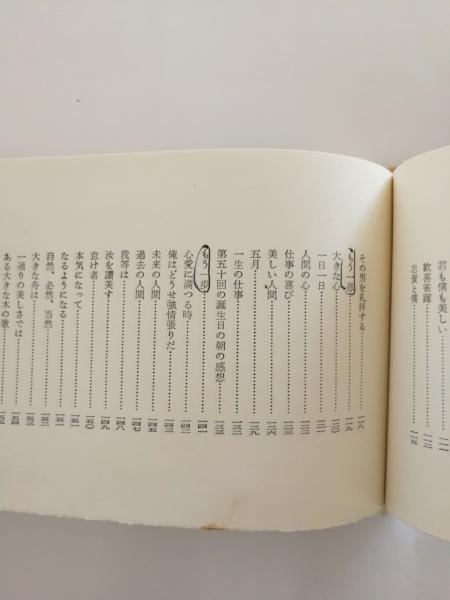 君も僕も美しい 一一一
歓喜雀躍 一一二
志賀と僕 一一五
その男を礼拝する 一一八
もう一息 一一九
大きな心 一二〇
一日一日 一二一
人間の心 一二二
仕事の喜び 一二三
美しい人間 一二六
五月 一二九
一生の仕事 一三一
第五十回の誕生日の朝の感想
もう一歩 一四一
心愛に満つる時 一四二
俺はどうせ強情張りだ 一四三
未来の人間 一四五
過去の人間 一四七
我等は 一四八
汝を讃美す 一四九
怠け者 一五〇
本気になって 一五一
なるようになる 一五一
自然、必然、当然 一五二
大きな舟は 一五三
一通りの美しさでは 一五四
ある大きな木の歌 一五五